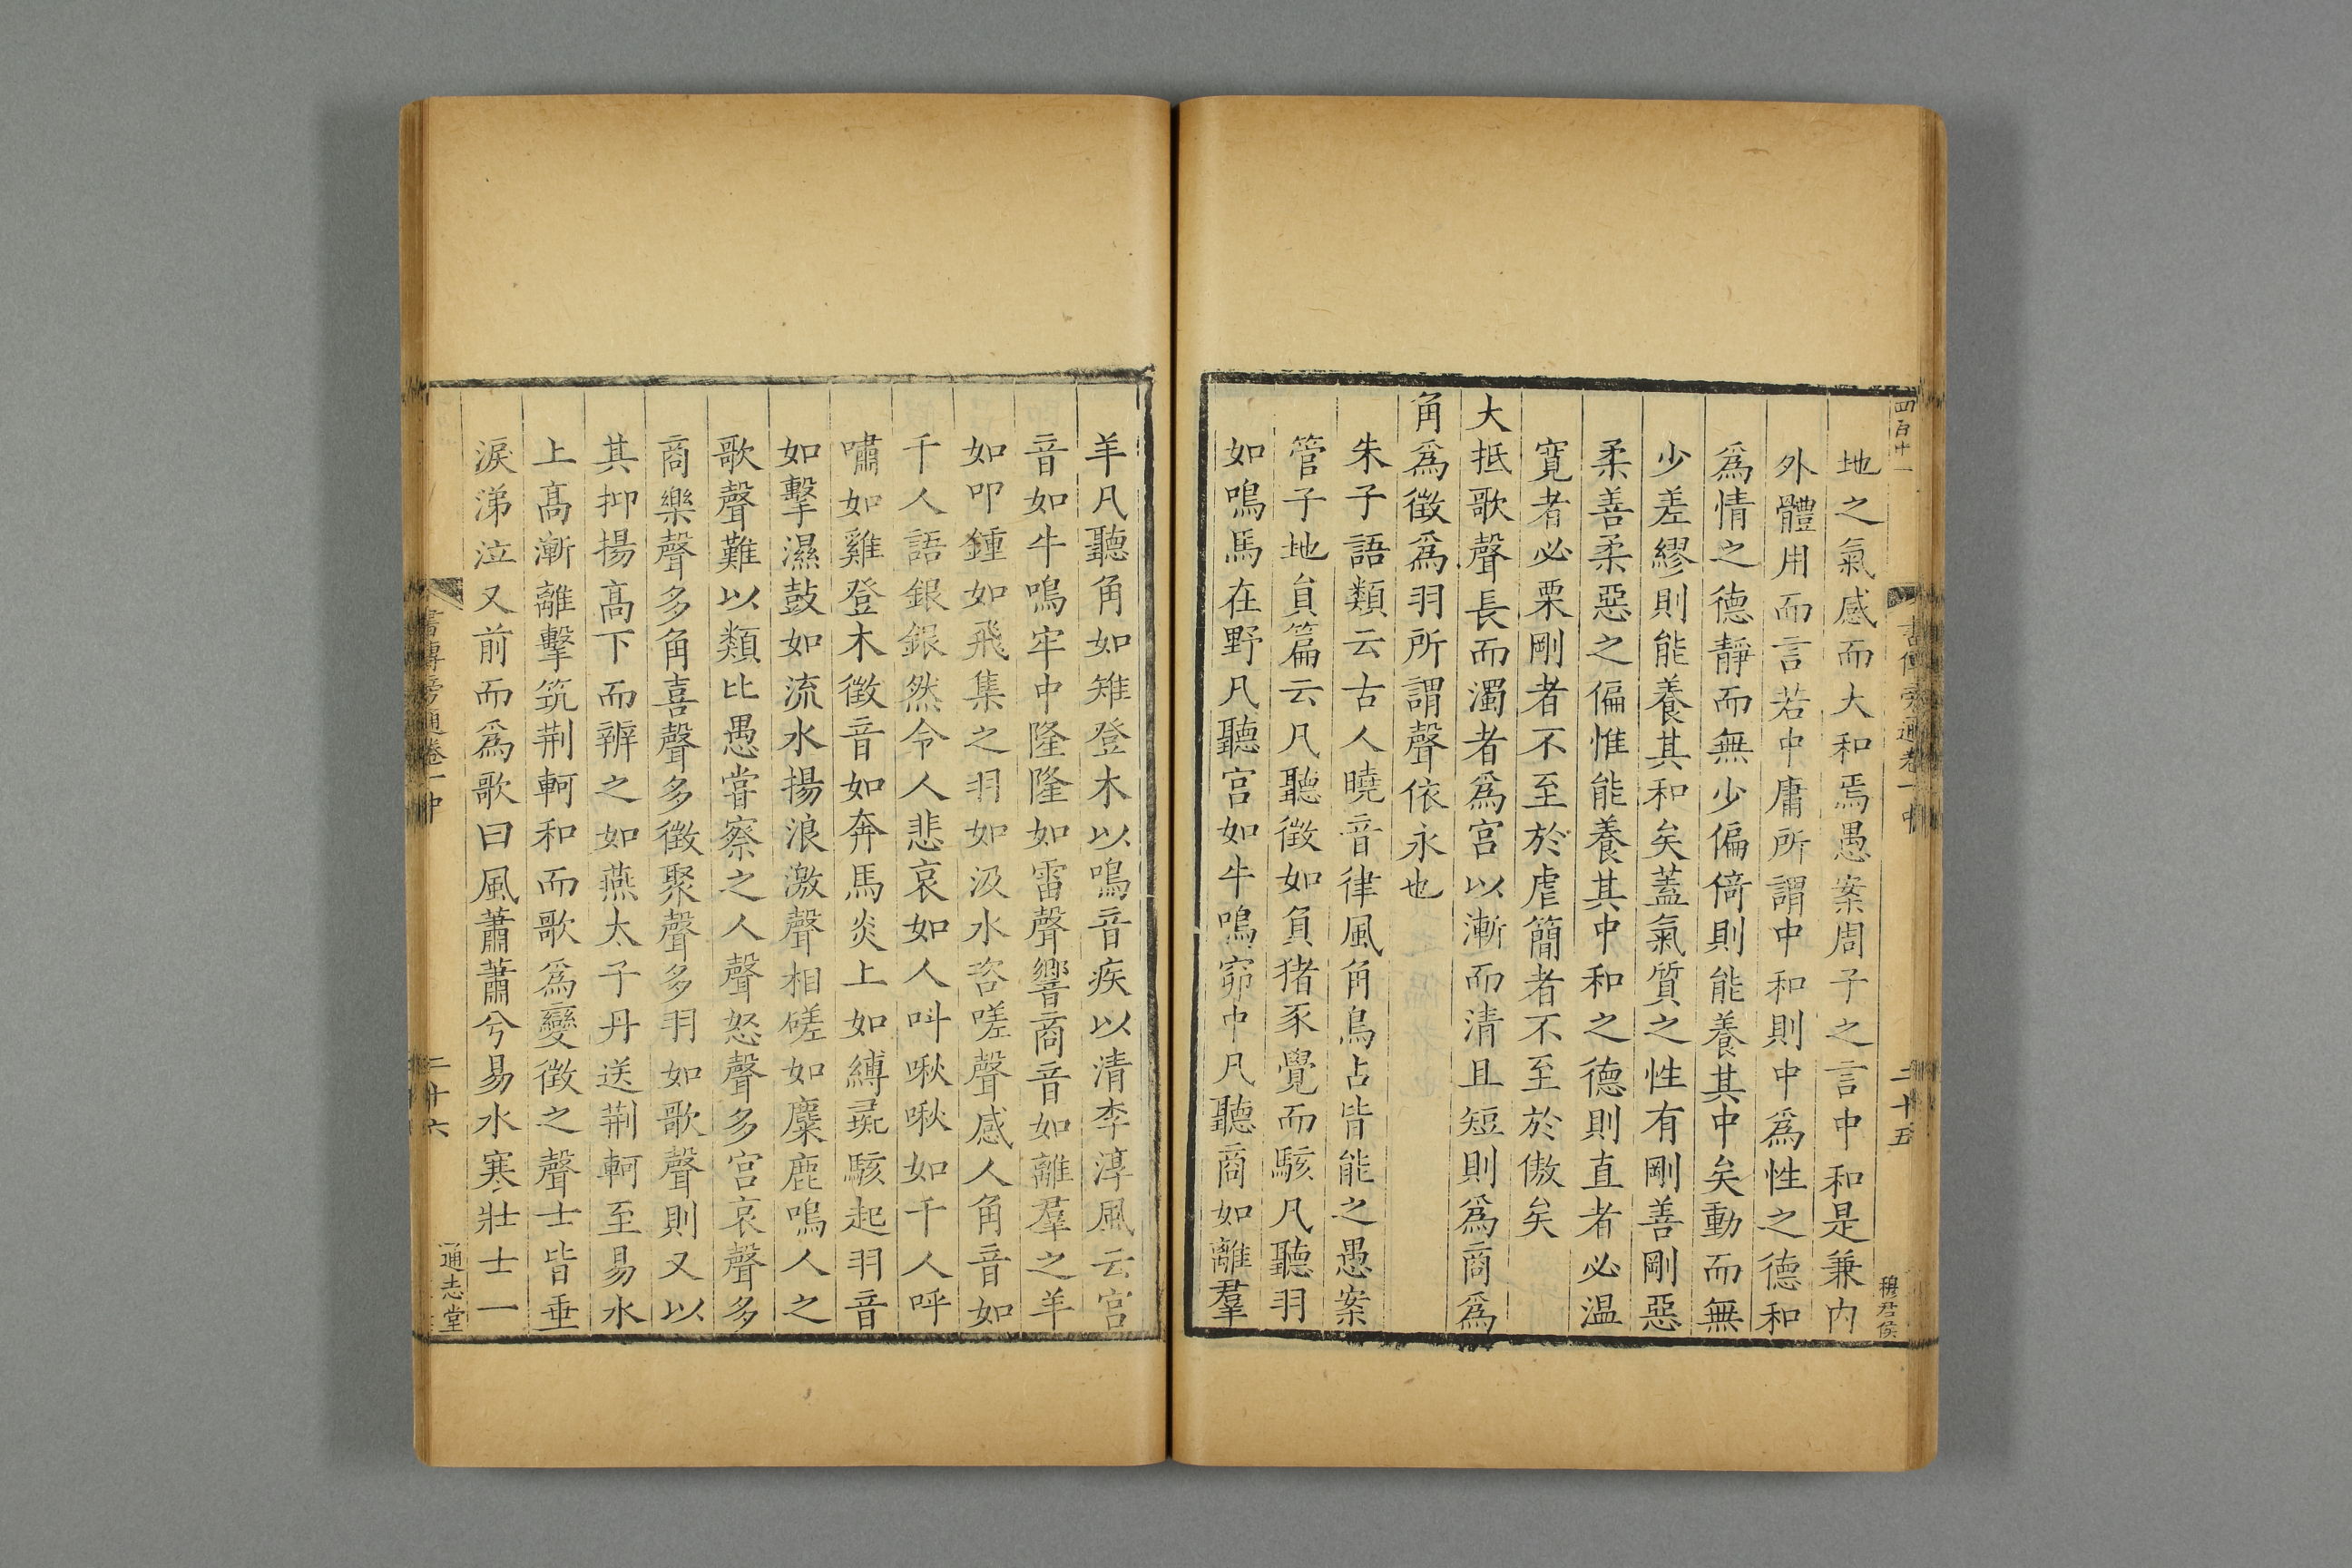 四百十一
書傳旁通卷一中
二十五
穆君侯
地之氣感而大和焉愚案周子之言中和是兼内
外體用而言若中庸所謂中和則中爲性之德和
爲情之德靜而無少偏倚則能養其中矣動而無
少差繆則能養其和矣蓋氣質之性有剛善剛惡
柔善柔惡之偏惟能養其中和之德則直者必温
寬者必栗剛者不至於虐簡者不至於傲矣
大抵歌聲長而濁者爲宫以漸而清且短則爲商爲
角爲徵爲羽所謂聲依永也
朱子語類云古人曉音律風角鳥占皆能之愚案
管子地貟篇云凡聽徵如負猪豕覺而駭凡聽羽
如鳴馬在野凡聽宫如牛鳴窌中凡聽商如離羣
羊凡聽角如雉登木以鳴音疾以清李淳風云宫
音如牛鳴牢中隆隆如雷聲響商音如離羣之羊
如叩鍾如飛集之羽如汲水咨嗟聲感人角音如
千人語銀銀然令人悲哀如人呌啾啾如千人呼
嘯如雞登木徵音如奔馬炎上如縛彘駭起羽音
如擊濕鼓如流水揚浪激聲相磋如麋鹿鳴人之
歌聲難以類比愚嘗察之人聲怒聲多宫哀聲多
商樂聲多角喜聲多徵聚聲多羽如歌聲則又以
其抑揚高下而辨之如燕太子丹送荆軻至易水
上高漸離擊筑荆軻和而歌爲變徵之聲士皆垂
淚涕泣又前而爲歌曰風蕭蕭兮易水寒壯士一
書傳旁通卷一中
二十六
通志堂